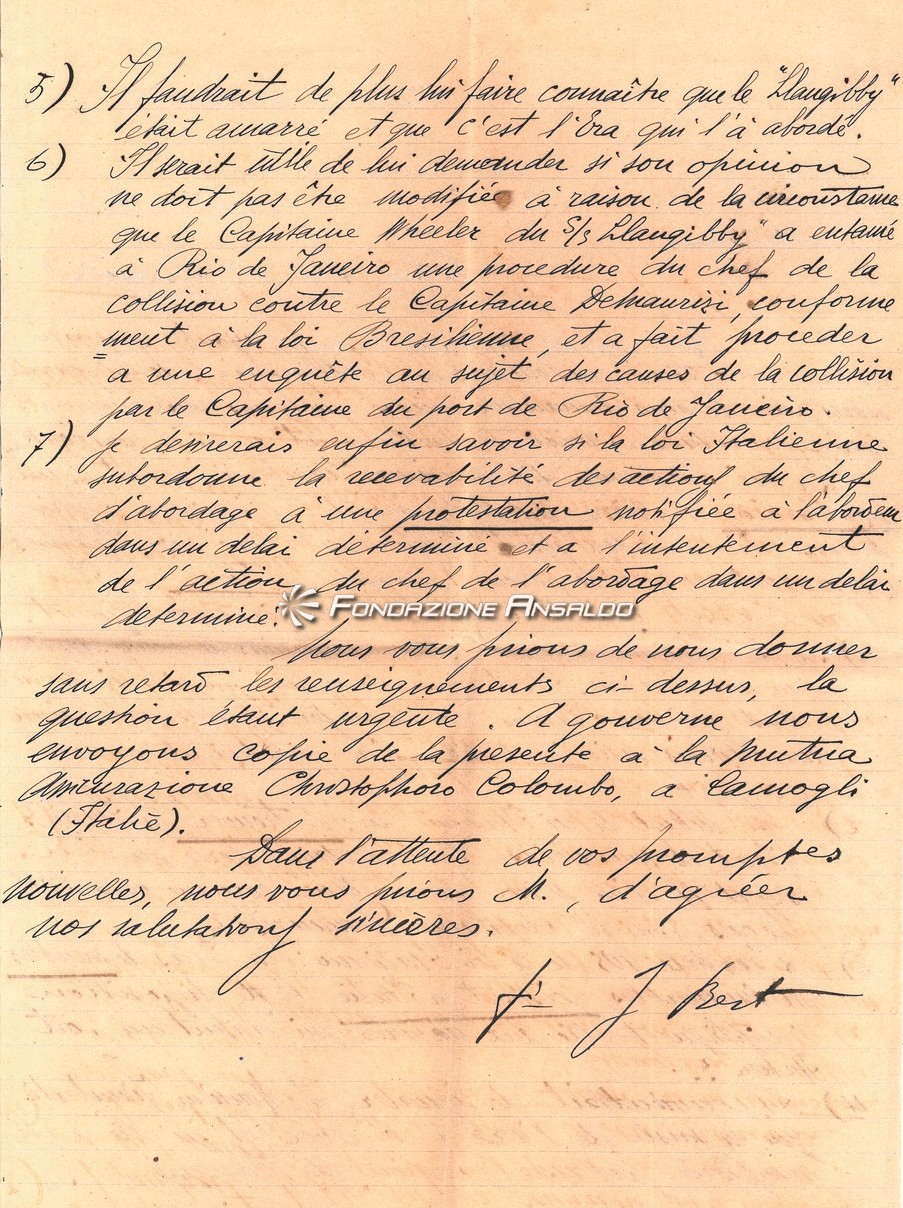 5) Il faudrait de plus lui faire connaître que le "Llangibby"
était amarré et que c'est l'Era qui l'à abordé.
6) Il serait utile de lui demander si son opinion
ne doit pas être modifiée à raison de la circonstance
que le Capitaine Wheeler du S/s Llangibby" a entamé
à Rio de Janeiro une procedure du chef de la
collision contre le Capitaine Demaurizi, conforme
=ment à la loi Bresilienne, et a fait proceder
a une enquête au sujet des causes de la collision
par le Capitaine du port de Rio de Janeiro.
7) Je desirerais enfin savoir si la loi Italienne
subordonne la recevabilité des actions du chef
d'abordage à une protestation notifiée à l'abordeur
dans un delai déterminé et a l'intentement
de l'action du chef de l'abordage dans un delai
determiné.
FONDAZIONE ANSALDO
Nous vous prions de nous donner
sans retard les renseignements ci-dessus, la
question étant urgente. A gouverne nous
envoyons copie de la presente à la Mutua
Assicurazione Christophoro Colombo, a Camogli
(Italie).
Dans l'attente de vos promptes
nouvelles, nous vous prions M., d'agréer
nos salutations sincères.
J Bert